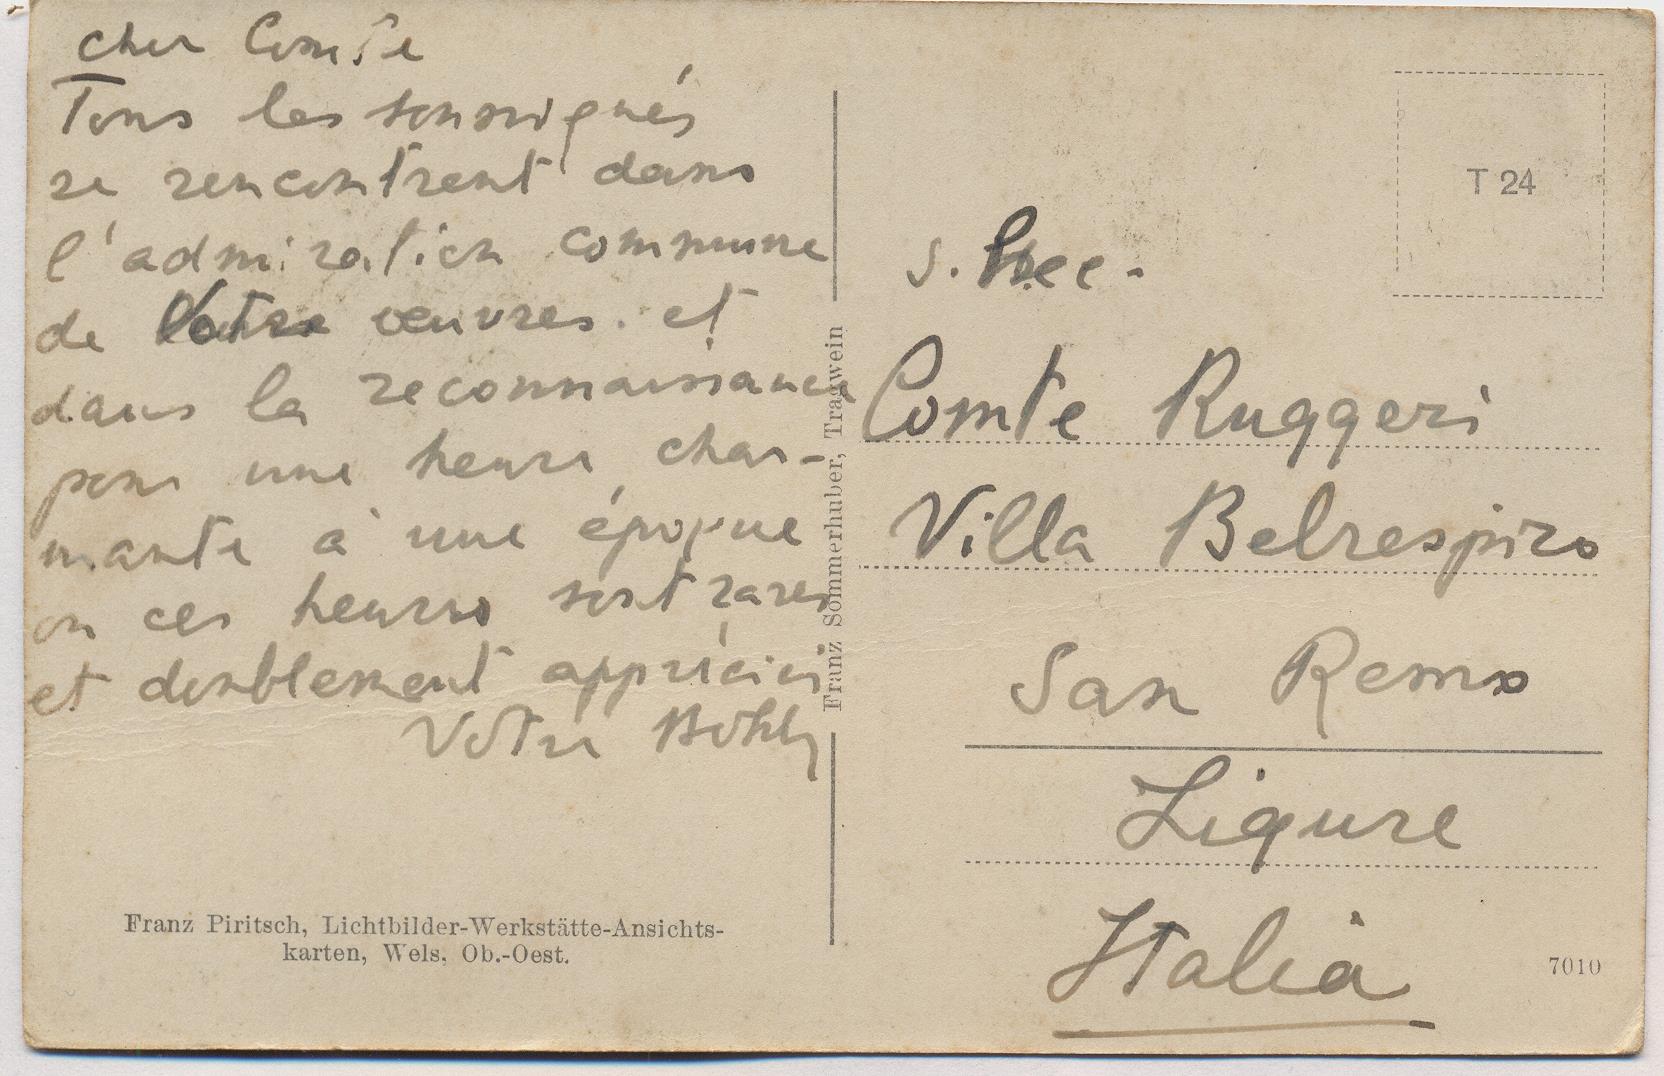 cher Comte
Tous les soussignés
se rencontrent dans
l'admiration commune
de Votre œuvres. et
dans la reconnaissance
pour une heure char-
mante à une époque
ou ces heures sont rares
et doublement appréciées
Votre
Franz Piritsch, Lichtbilder-Werkstätte-Ansichts-
karten, Wels, Ob.-Oest.
Franz Sommerhuber, Tragwein
T 24
Comte Ruggeri
Villa Belrespiro
San Remo
Ligure
Italia
7010